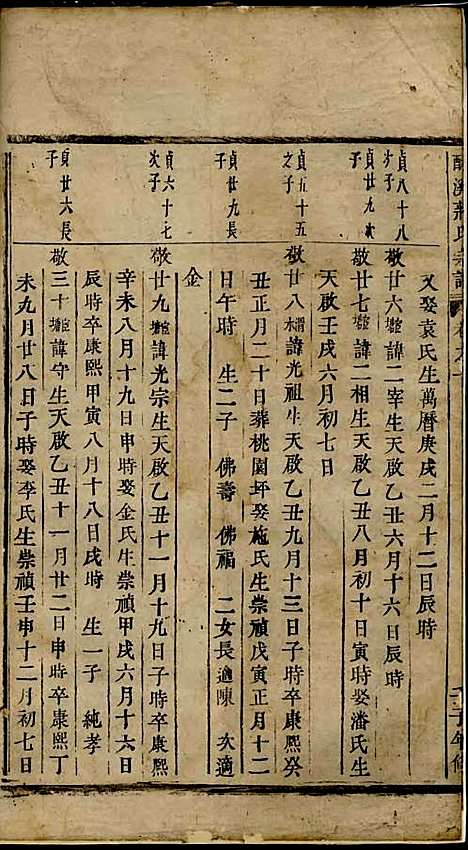 又娶袁氏生萬曆庚戌二月十二日辰時
貞八十八
次子
敬廿六諱二宰生天啟乙丑六月十六日辰時
貞廿九次
子
敬廿七諱二相生天啟乙丑八月初十日寅時娶潘氏生
天啟壬戌六月初七日
貞五十五
之子
敬廿八諱光祖生天啟乙丑九月十三日子時卒康熙癸
丑正月二十日葬桃園坪娶施氏生崇禎戊寅正月十二
日午時 生二子 佛壽 佛福 二女長適陳 次適
金
貞廿九長
子
貞六十七
次子
敬廿九諱光宗生天啟乙丑十一月十九日子時卒康熙
辛未八月十九日申時娶金氏生崇禎甲戌六月十六日
辰時卒康熙甲寅八月十八日戌時 生一子 純孝
貞廿六長
子
敬三十諱守生天啟乙丑十一月廿二日申時卒康熙丁
未九月廿八日子時娶李氏生崇禎壬申十二月初七日